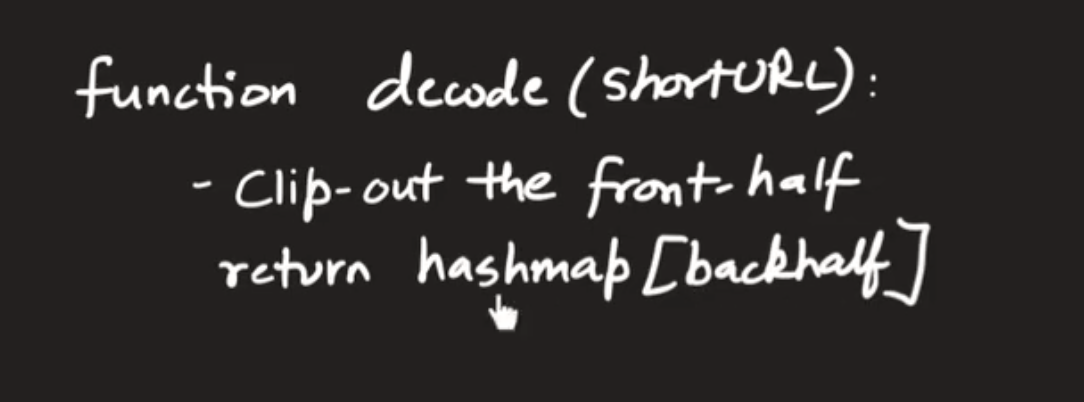 function decode (shortURL):
- Clip-out the front-half
return hashmap [backhalf]